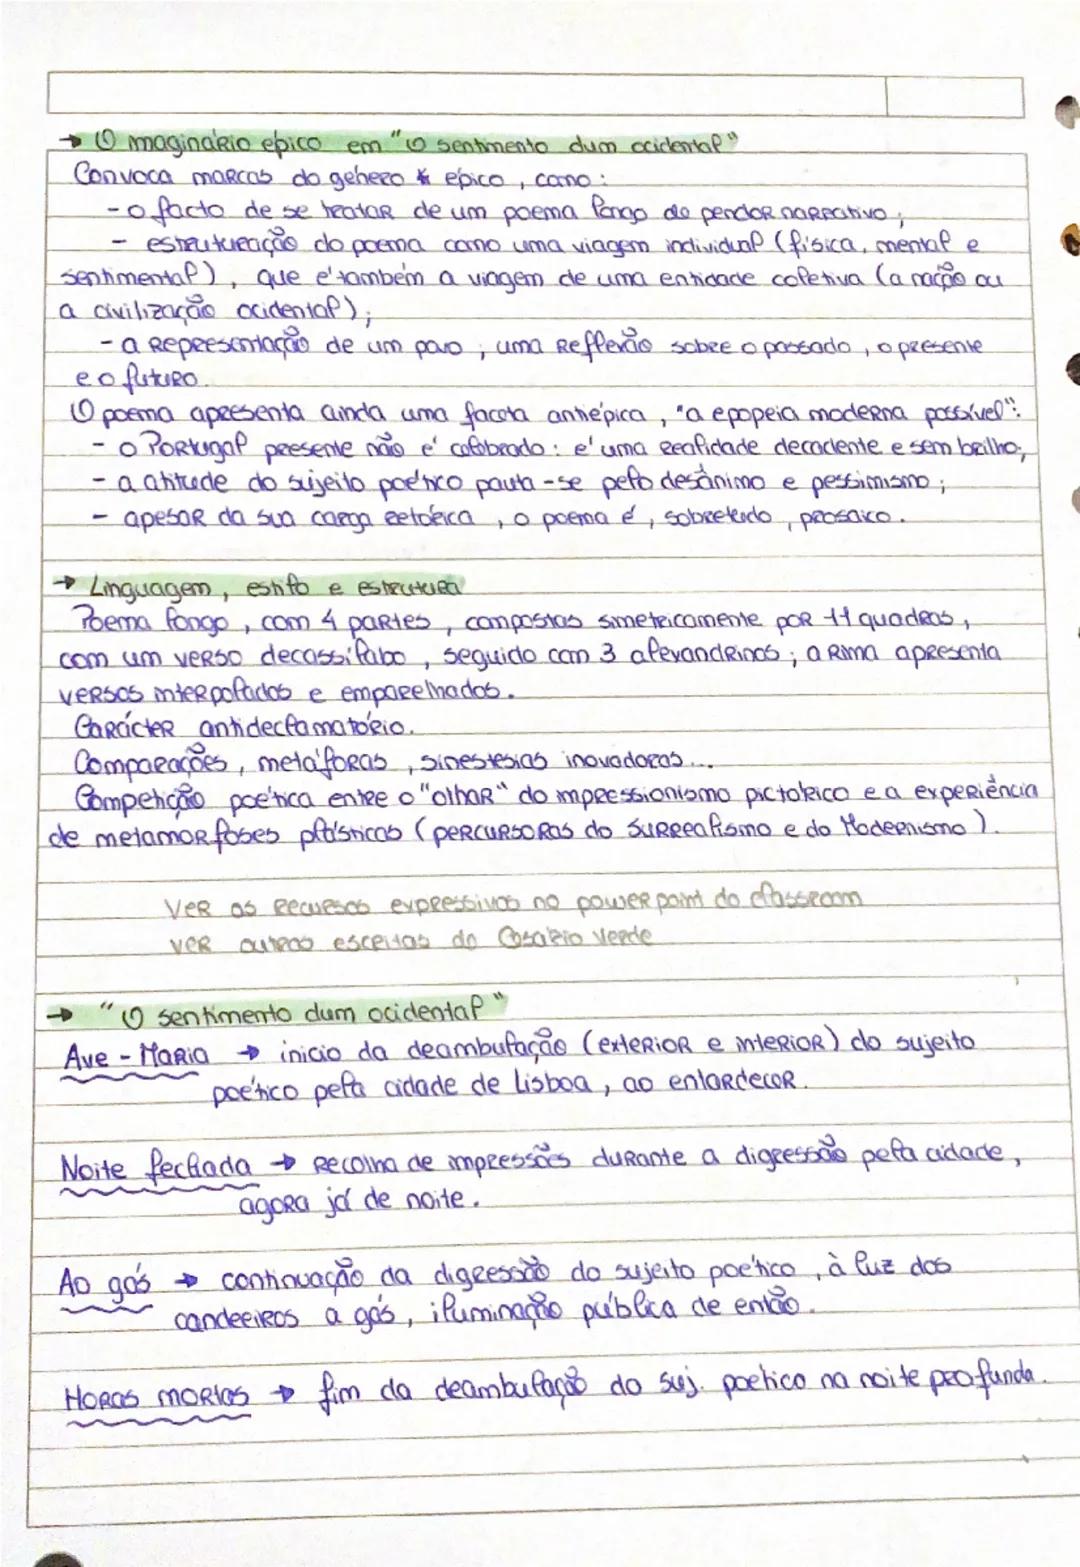 → O imaginário épico em "O sentimento dum ocidental"
Convoca marcas do género épico, como:
- o facto de se tratar de um poema longo de pendor narrativo;
- estruturação do poema como uma viagem individual (física, mental e
sentimental), que é também a viagem de uma entidade coletiva (a nação ou
a civilização ocidental);
- a representação de um povo; uma reflexão sobre o passado, o presente
e o futuro.
O poema apresenta ainda uma faceta antiépica, "a epopeia moderna possível":
- o Portugal presente não é celebrado: é uma realidade decadente e sem brilho;
- a atitude do sujeito poético pauta-se pelo desânimo e pessimismo;
- apesar da sua carga retórica, o poema é, sobretudo, prosaico.
→ Linguagem, estilo e estrutura
Poema longo, com 4 partes, compostas simetricamente por 11 quadras,
com um verso decassílabo, seguido com 3 alexandrinos; a rima apresenta
versos interpolados e emparelhados.
Carácter antideclamatório.
Comparações, metáforas, sinestesias inovadoras...
Competição poética entre o "olhar" do impressionismo pictórico e a experiência
de metamorfoses plásticas (percursoras do Surrealismo e do Modernismo).
Ver os recursos expressivos no powerpoint do classroom
ver outras escritas do Cesário Verde
→ "O sentimento dum ocidental"
Ave-Maria → inicio da deambulação (exterior e interior) do sujeito
poético pela cidade de Lisboa, ao entardecer.
Noite fechada → Recolha de impressões durante a digressão pela cidade,
agora já de noite.
Ao gás → continuação da digressão do sujeito poético, à luz dos
candeeiros a gás, iluminação pública de então.
Horas mortas → fim da deambulação do suj. poético na noite profunda.